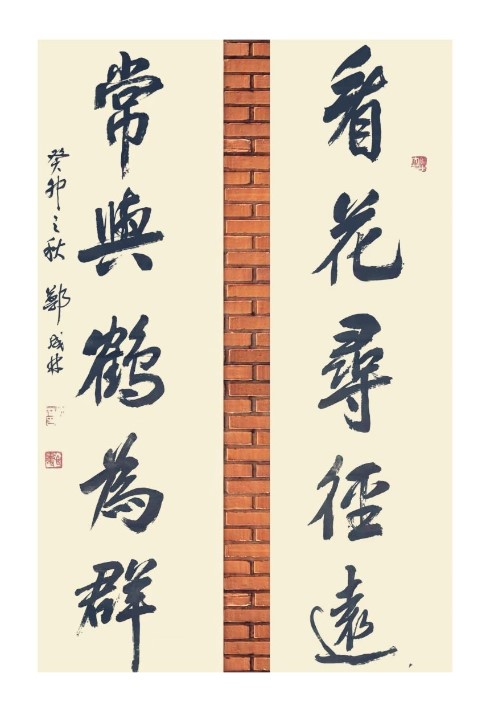 看花尋徑遠
常與鶴為群
癸卯之秋 鄭成林